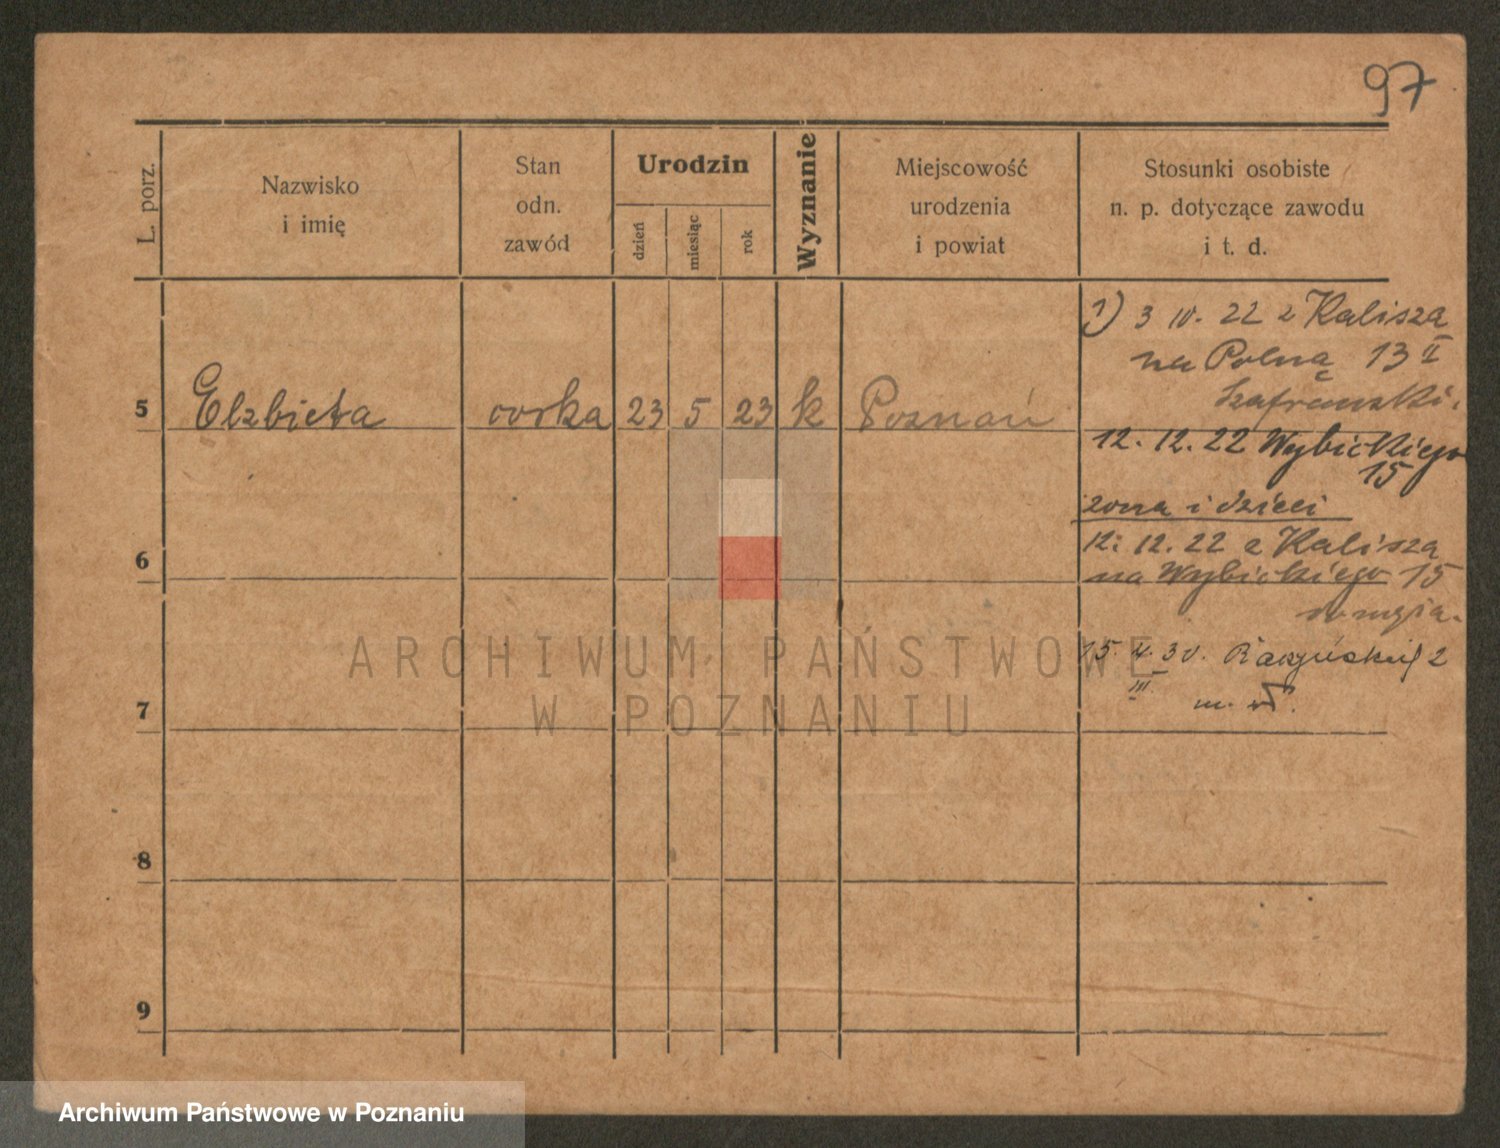 97
L. porz.
Nazwisko
i imię
Stan
odn.
zawód
Urodzin
dzień
miesiąc
rok
Wyznanie
Miejscowość
urodzenia
i powiat
Stosunki osobiste
n. p. dotyczące zawodu
i t. d.
5 Elzbieta corka 23 5 23 k Poznań
1) 3 IV. 22 z Kalisza
na Polną 13 II
Szafranski.
12. 12. 22 Wybickiego
15
zona i dzieci
12. 12. 22 z Kalisza
na Wybickiego 15
6
15. 30. 2
III
m. wł.
7
8
9
ARCHIWUM PAŃSTWOWE
W POZNANIU
Archiwum Państwowe w Poznaniu